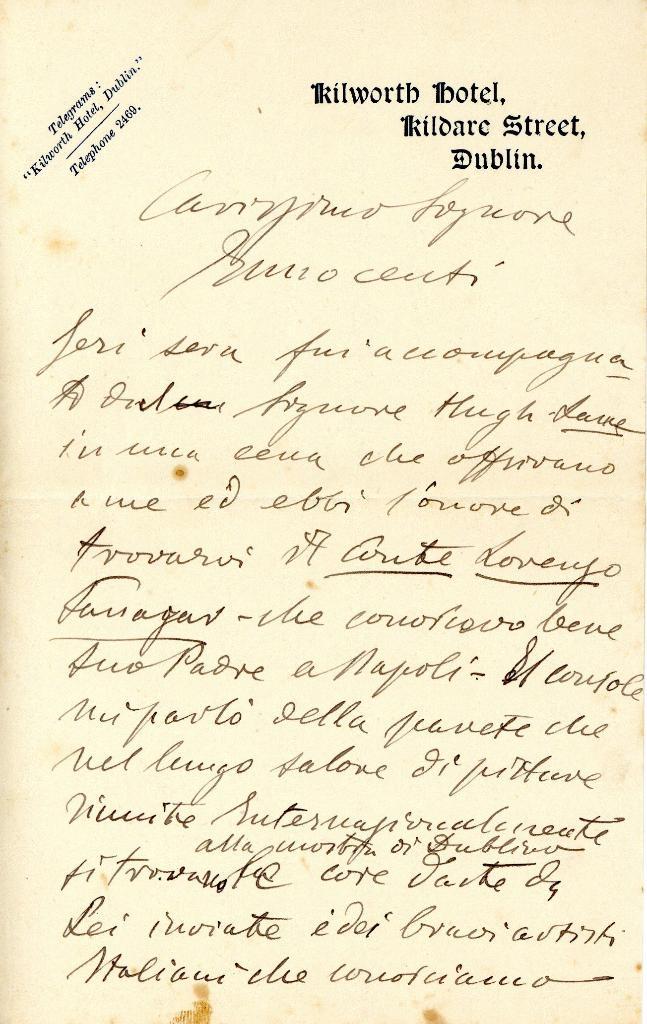 Telegrams:
"Kilworth Hotel, Dublin."
Telephone 2469.
Kilworth Hotel,
Kildare Street,
Dublin.
Carissimo Signore
Innocenti
Ieri sera fui accompagna
to dal Signore Hugh Lane
in una cena che offrivano
a me ed ebbi l'onore di
trovarvi il Conte Lorenzo
che conoscevo bene
suo Padre a Napoli - Il console
mi parlò della parete che
nel lungo salone di pitture
riunite Internazionalmente
alla mostra di Dublino
si trovano le cose d'arte da
Lei inviate e dei bravi artisti
Italiani che conosciamo